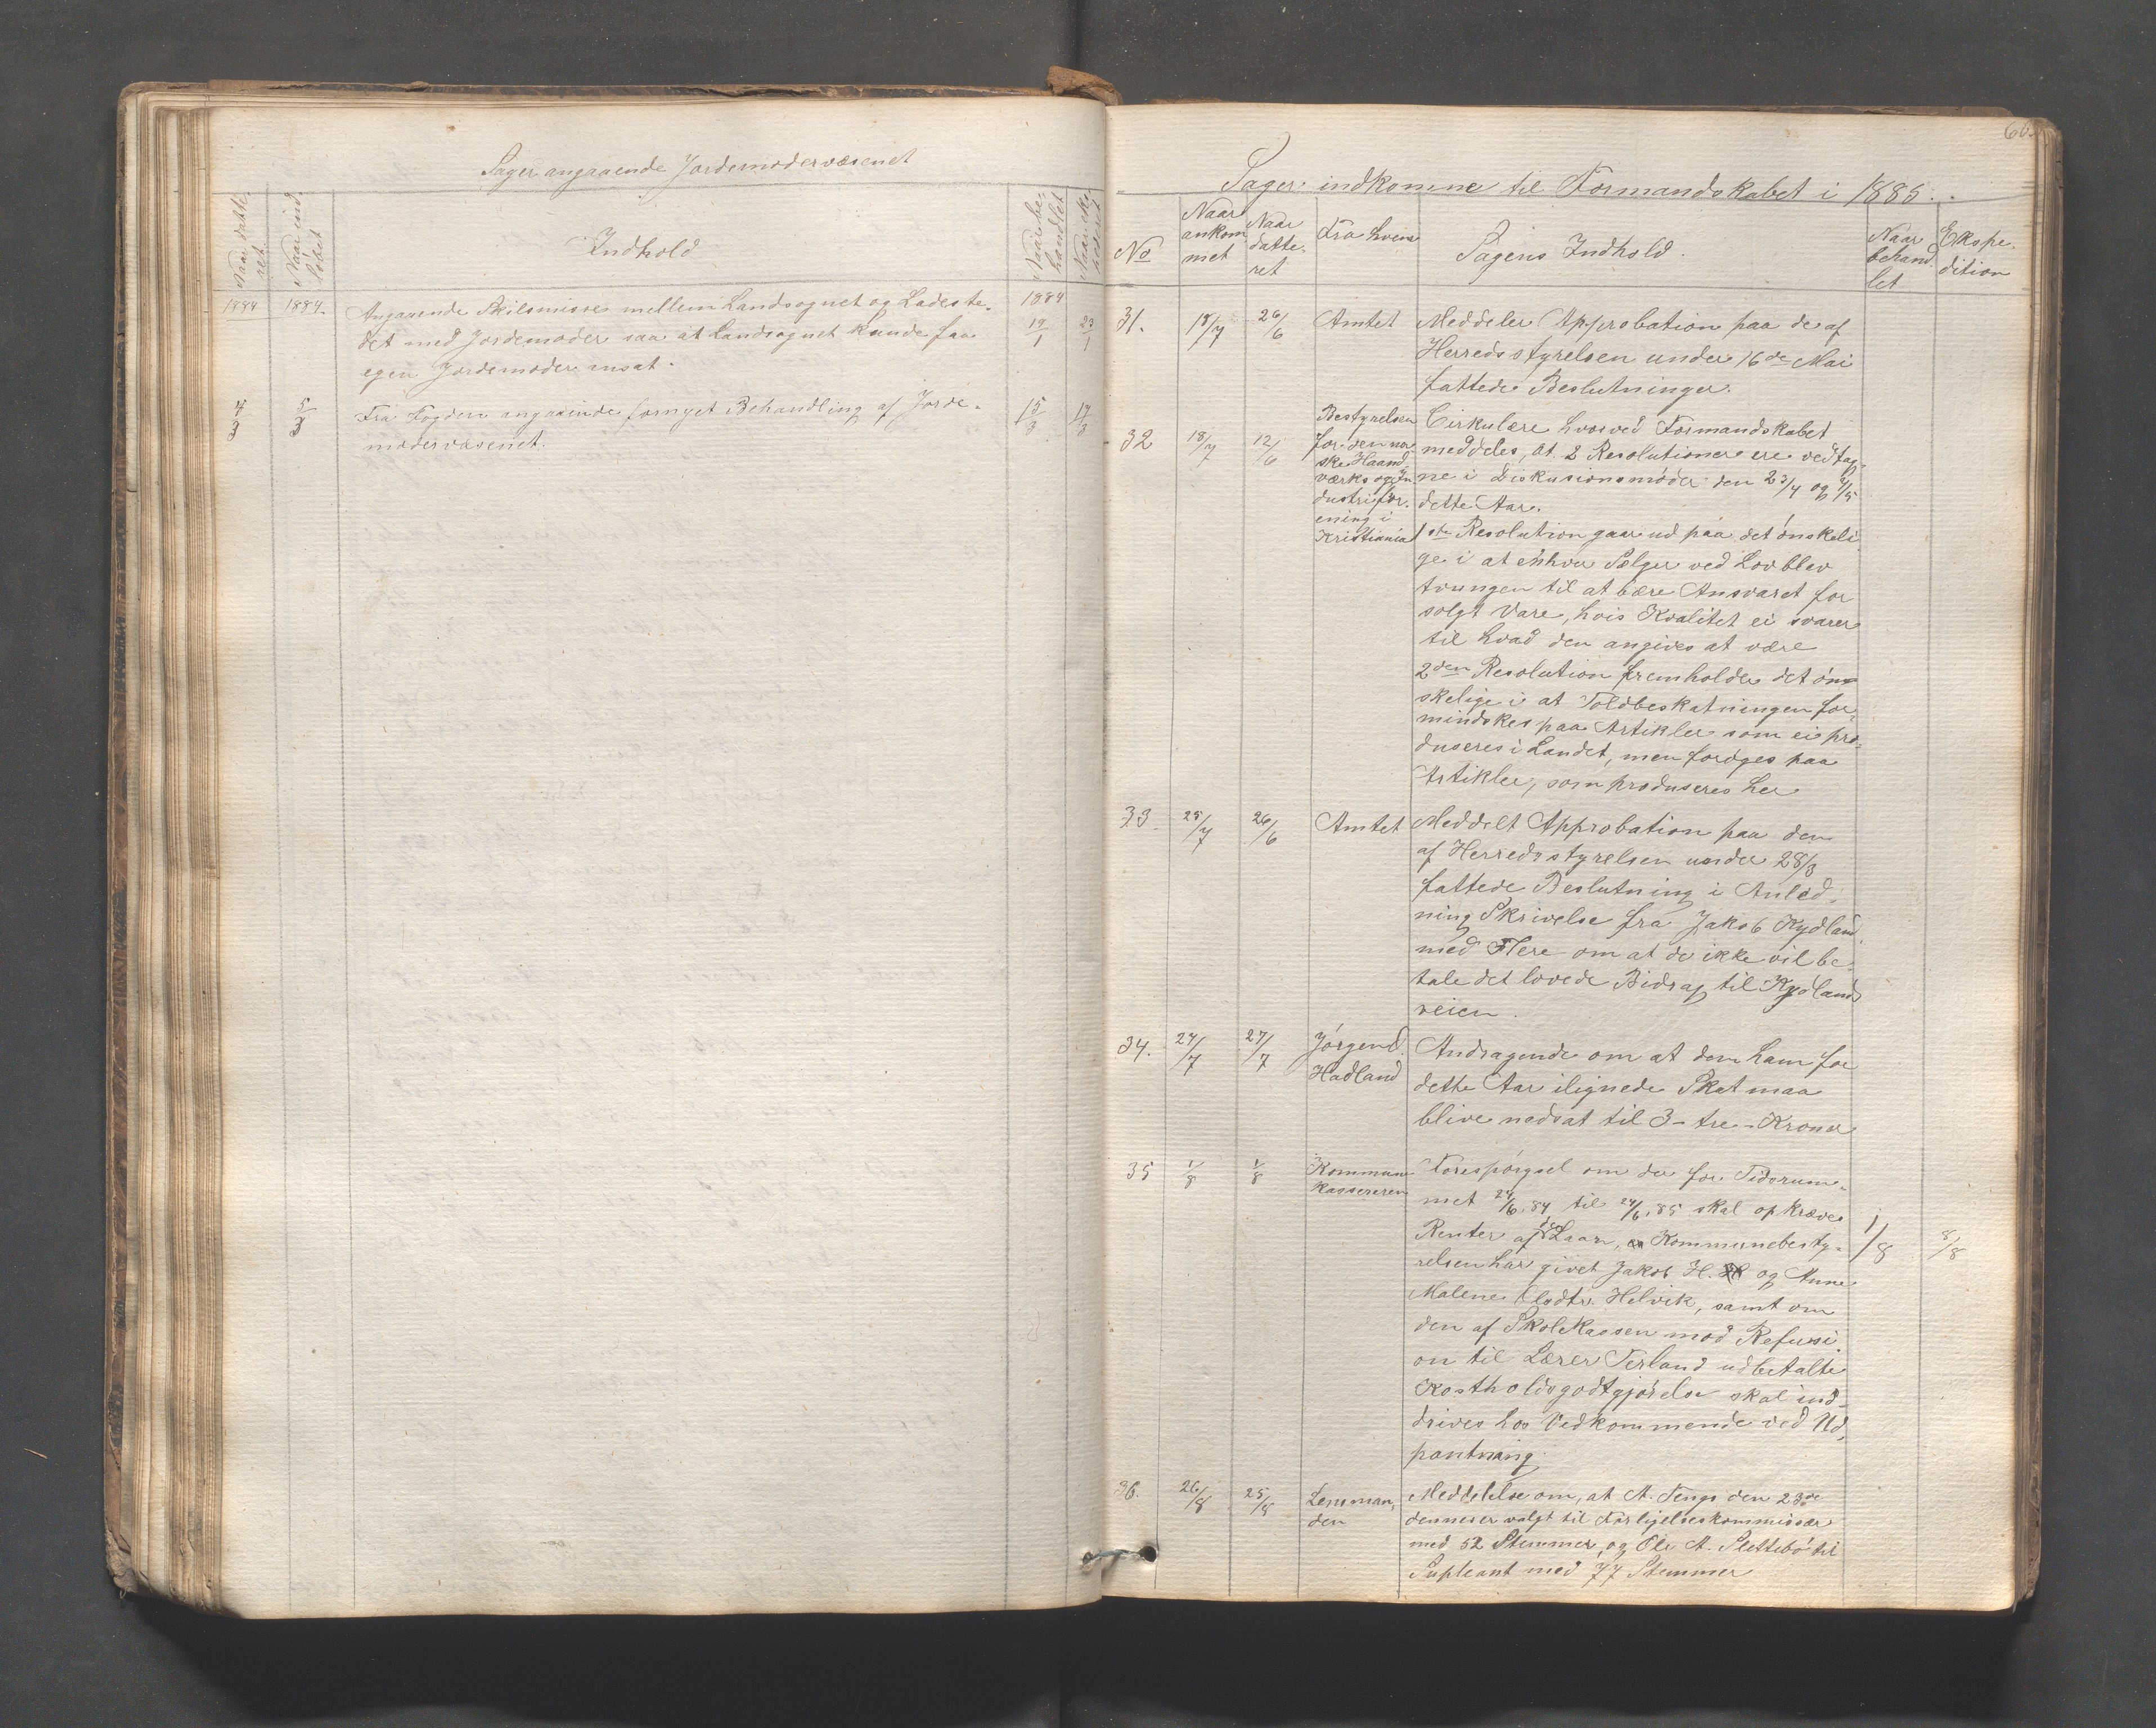 Sager angaaende Jordemodervæsenet
Naar datte-
ret.
Naar ind
løbet
Indhold
Naar be-
handlet
1884 1884.
Angaaende Skilsmisse mellem Landsognet og Ladeste-
1884
det med Jordemoder saa at Landsognet kunde faa
19/1 23/1
egen Jordemoder ansat.
4/3 5/3 Fra Fogden angaaende fornyet Behandling af Jorde- 15/3 17/3
modervæsenet.
60.
Sager indkomne til Formandskabet i 1885.
No
Naar
ankom
met
Naar
datte-
ret
Fra hvem
Sagens Indhold.
Naar
behand
let
Ekspe-
dition
31. 18/7 26/6 Amtet Meddeler Approbation paa de af
Herredsstyrelsen under 16de Mai
fattede Beslutninger.
32 18/7 12/6
Bestyrelsen
for den nor
ske Haand
værks og In
dustrifor.
ening i
Kristiania
Cirkulære hvorved Formandskabet
meddeles, at 2 Resolutioner ere vedtag-
ne i Diskusionsmøder den 23/4 og 4/5
dette Aar.
1ste Resolution gaar ud paa det ønskeli
ge i at enhver Sælger ved Lov blev
tvungen til at bære Ansvaret for
solgt Vare, hvis Kvalitet ei svarer
til hvad den angives at være
2den Resolution fremholder det øn
skelige i at Toldbeskatningen for-
mindskes paa Artikler som ei pro-
duseres i Landet, men forøges paa
Artikler, som produseres her
33. 25/7 26/6 Amtet Meddelt Approbation paa den
af Herredsstyrelsen under 28/3
fattede Beslutning i Anled-
ning Skrivelse fra Jakob Kydland
med Flere om at de ikke vil be-
tale det lovede Bidrag til Kydlands
veien.
34. 27/7 27/7 Jørgen
Hadland
Andragende om at den ham for
dette Aar ilignede Skat maa
blive nedsat til 3 - tre - Kroner
35 1/8 1/8 Kommune
kassereren
Forespørgsel om der for Tidsrum-
met 24/6.84 til 24/6.85 skal opkræves
Renter af det Laan, Kommunebesty-
relsen har givet Jakob H. og Anne
1/8 8/8
Malene Helvik, samt om
den af Skolekassen mod Refusi
on til Lærer Terland udbetalte
Kostholdsgodtgjørelse skal ind-
drives hos Vedkommende ved Ud-
pantning.
36. 26/8 25/8 Lensman-
den
Meddelelse om, at A. Tengs den 23de
dennes er valgt til Forligelseskommissær
med 52 Stemmer, og Ole A. Slettebø til
Supleant med 77 Stemmer